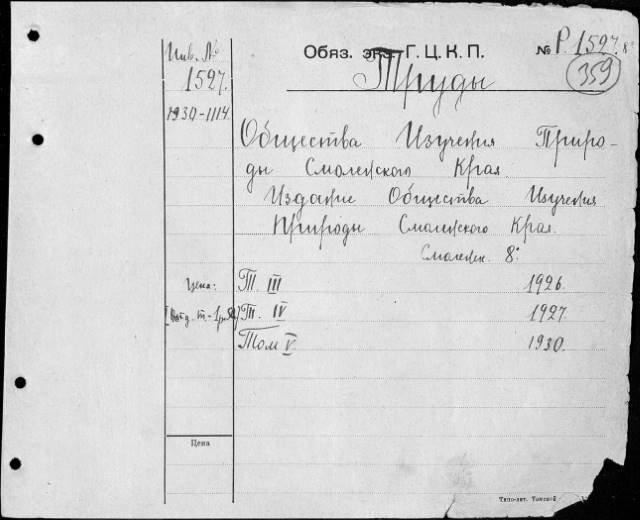 Инв. №
1527.
1930-1114.
Обяз. экз. Г. Ц. К. П.
№ Р. 1527. 8°
359
Труды
Общества Изучения Приро-
ды Смоленского Края.
Издание Общества Изучения
Природы Смоленского Края.
Смоленск. 8°.
Цена:
Т. III 1926.
Т. IV 1927.
Том V. 1930.
Цена
Типо-лит. Томской